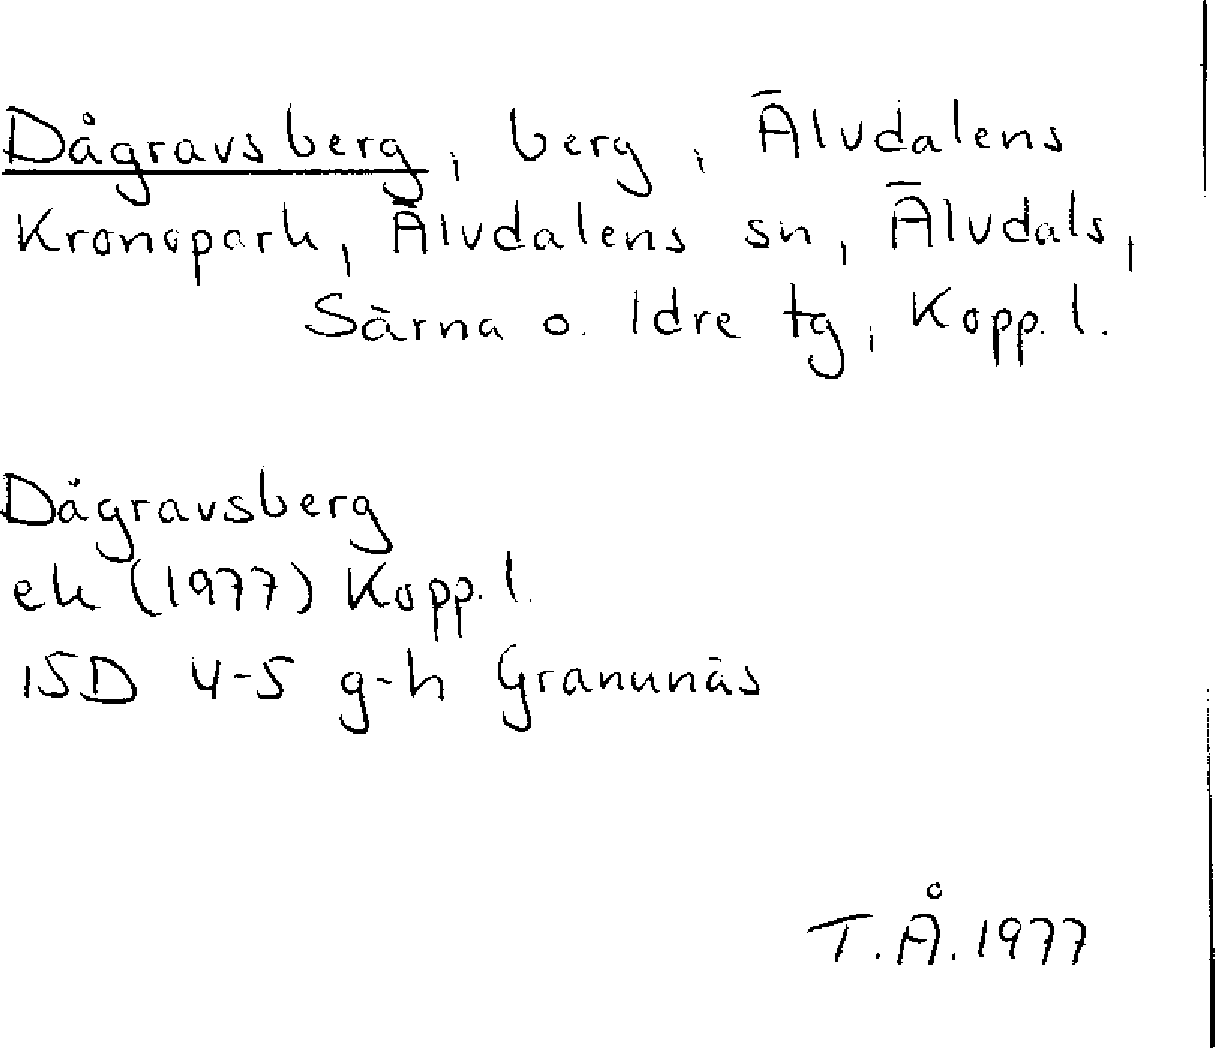 Dågravsberg, berg, Älvdalens
Kronopark, Älvdalens sn, Älvdals,
Särna o. Idre tg, Kopp. l.
Dågravsberg
ek (1977) Kopp. l.
15D 4-5 g-h Granunäs
T.Å. 1977